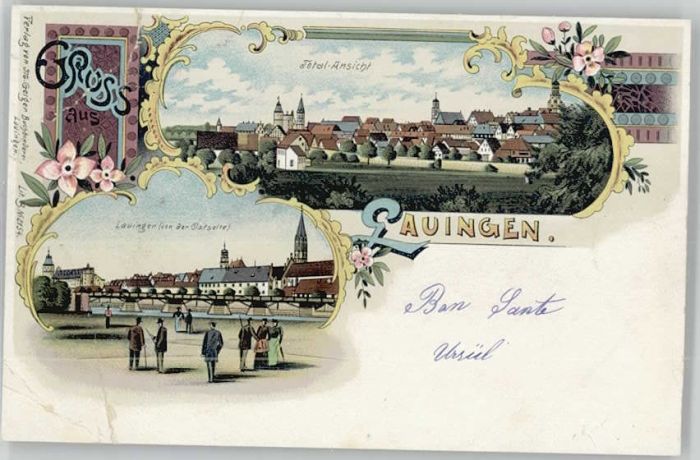 GRUSS
AUS
Total-Ansicht
LAUINGEN.
Lauingen (von der Ostseite).
Bon Sante
Ursül
Verlag von
Lauingen.